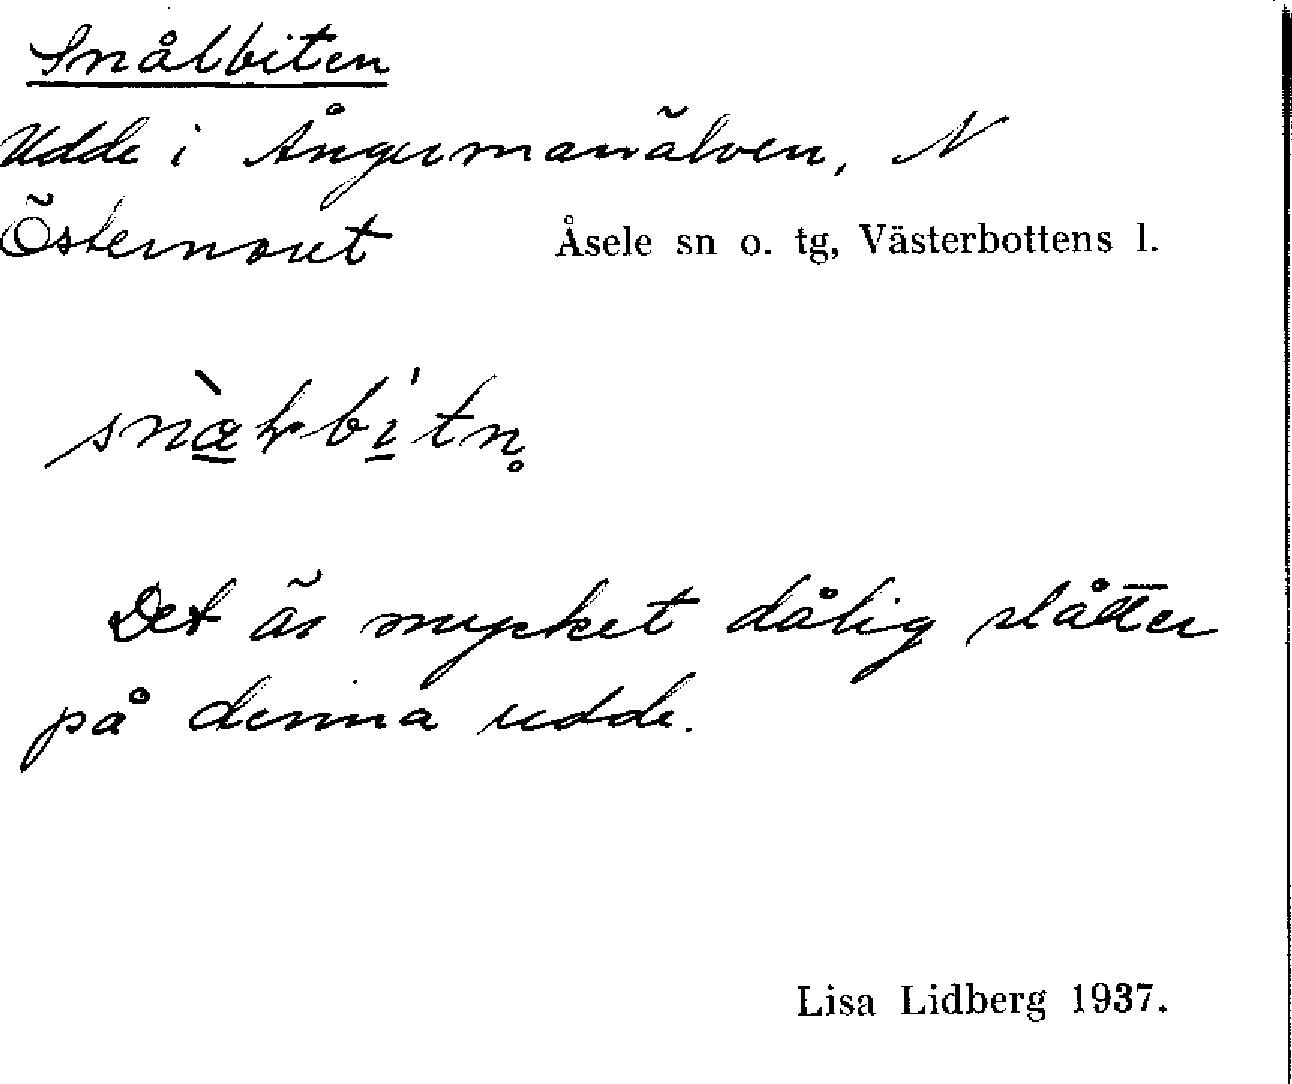 Snålbiten
Udde i Ångermanälven, N
Östernoret Åsele sn o. tg, Västerbottens l.
Det är mycket dålig slåtter
på denna udde.
Lisa Lidberg 1937.